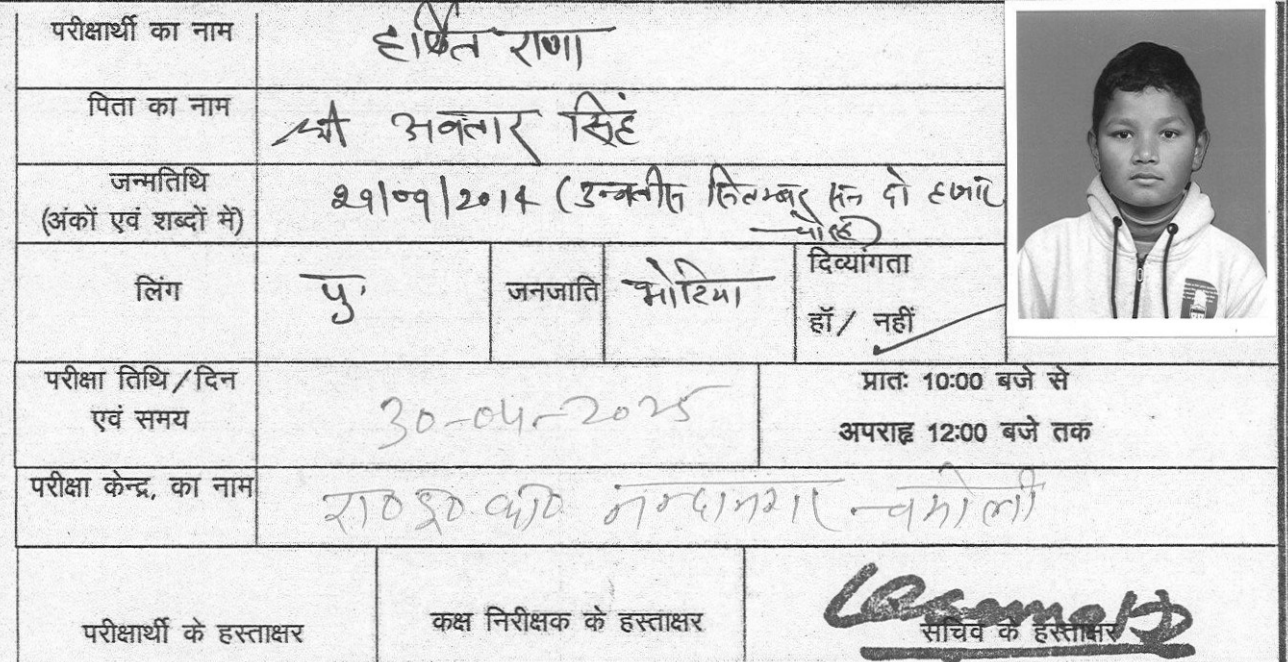 परीक्षार्थी का नाम हर्षित राणा
पिता का नाम श्री अवतार सिंह
जन्मतिथि
(अंकों एवं शब्दों में) 29/09/2014 (उन्नतीस सितम्बर सन दो हजार
चौदह)
लिंग पु० जनजाति भोटिया दिव्यांगता
हॉ / नहीं
परीक्षा तिथि / दिन
एवं समय 30-04-2025 प्रातः 10:00 बजे से
अपराह्न 12:00 बजे तक
परीक्षा केन्द्र, का नाम रा०इ०का० नन्दानगर चमोली
परीक्षार्थी के हस्ताक्षर कक्ष निरीक्षक के हस्ताक्षर सचिव के हस्ताक्षर